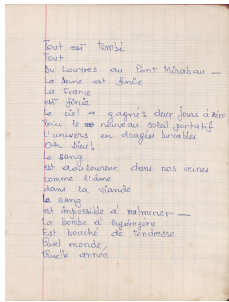 Tout est tombé
Tout
Du Louvres au Pont Mirabau —
La Seine est finie
La France
est finie
Le ciel a gagnés deux jours à zéro
Voici le nouveau soleil portatif
L'univers en dragées buvables
Oh Dieu!
Le sang
est douloureux dans nos veines
comme l'âme
dans la viande
Le sang
est impossible à malmener —
La bombe à hydrogène
Est bouché de tendresse
Quel monde,
Quelle année